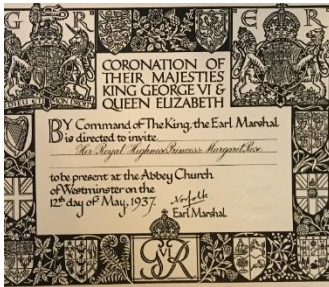 G R
E R
CORONATION OF
THEIR MAJESTIES
KING GEORGE VI &
QUEEN ELIZABETH
BY Command of The King, the Earl Marshal
is directed to invite
Her Royal Highness Princess Margaret Rose
to be present at the Abbey Church
of Westminster on the
12th day of May, 1937.
Norfolk.
Earl Marshal.
G VI R